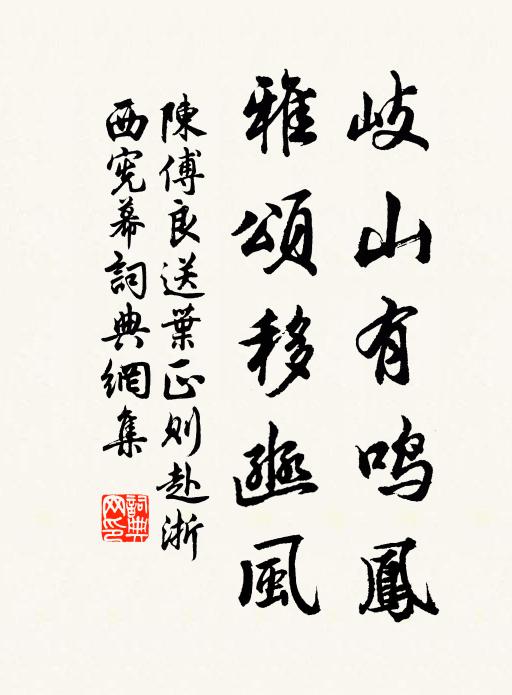 岐山有鸣鳳
雅頌移豳風
陳傅良送葉正則赴浙
西憲幕詞典網集
詞典網印